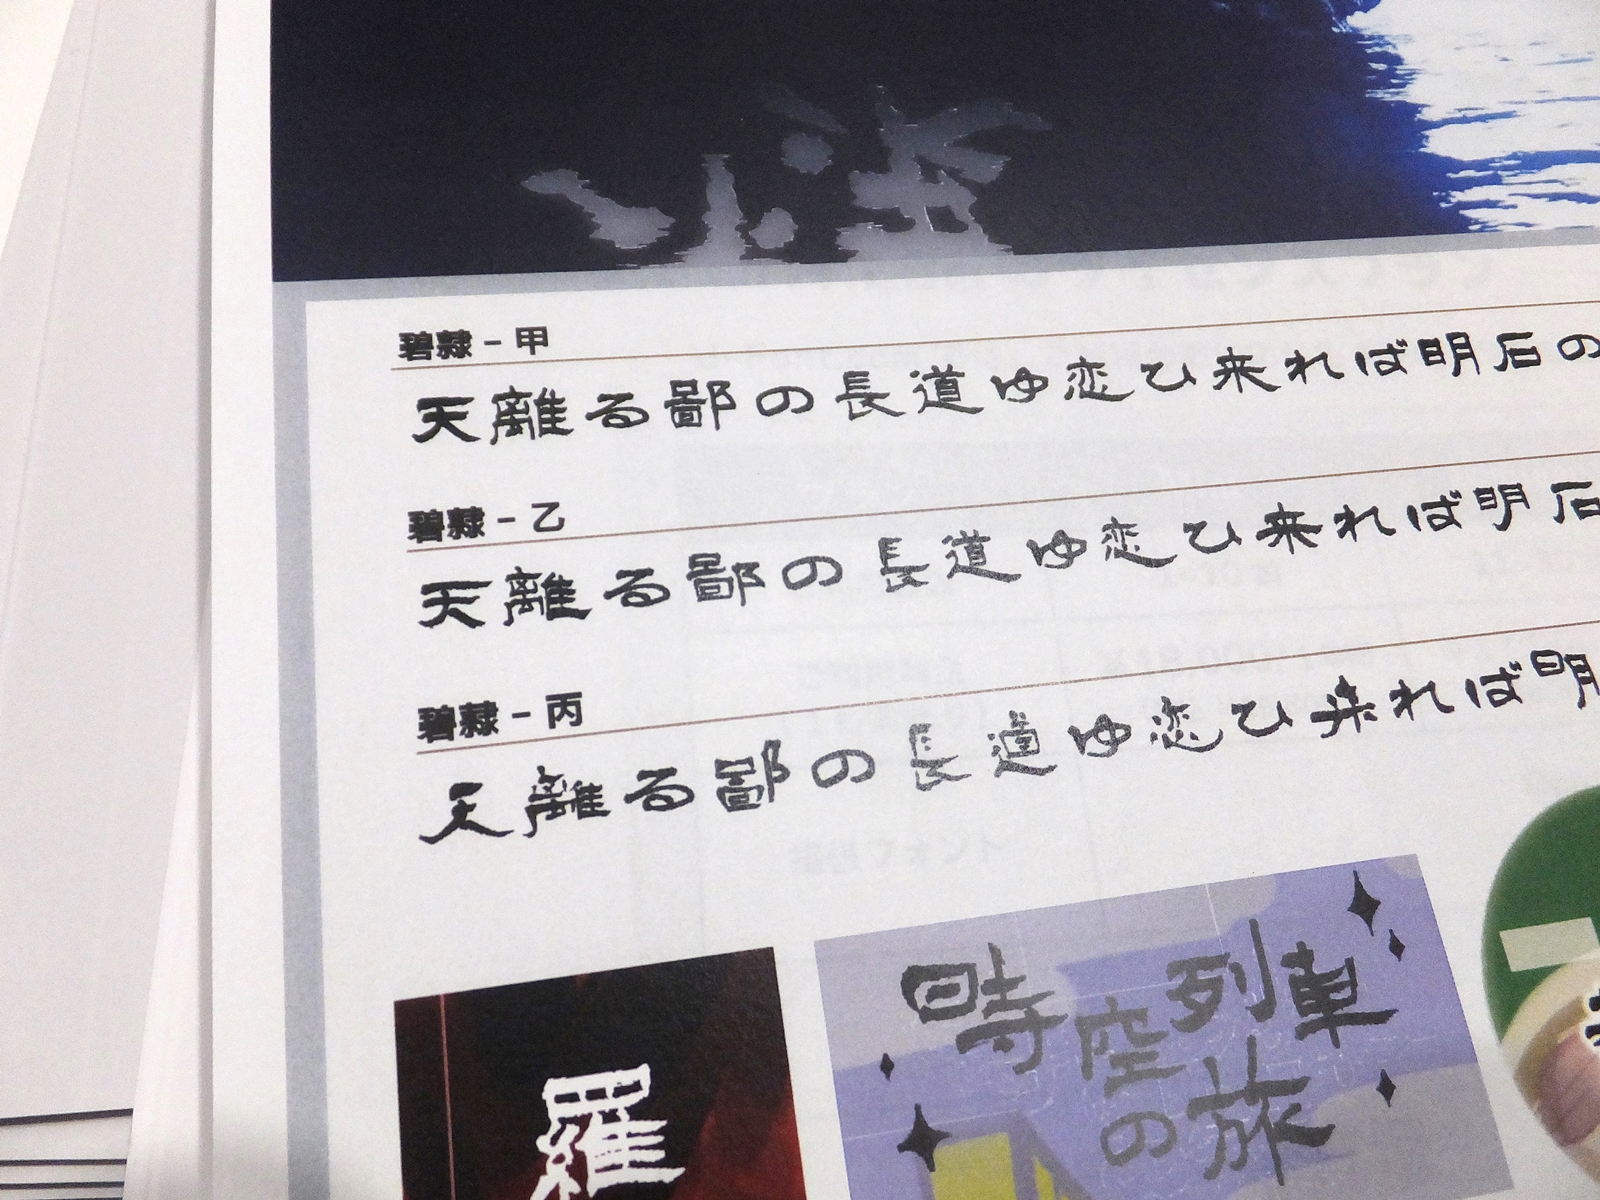 碧隷－甲
天離る鄙の長道ゆ恋ひ来れば明石の
碧隷－乙
天離る鄙の長道ゆ恋ひ来れば明石
碧隷－丙
天離る鄙の長道ゆ恋ひ来れば明
時空列車
の旅
羅